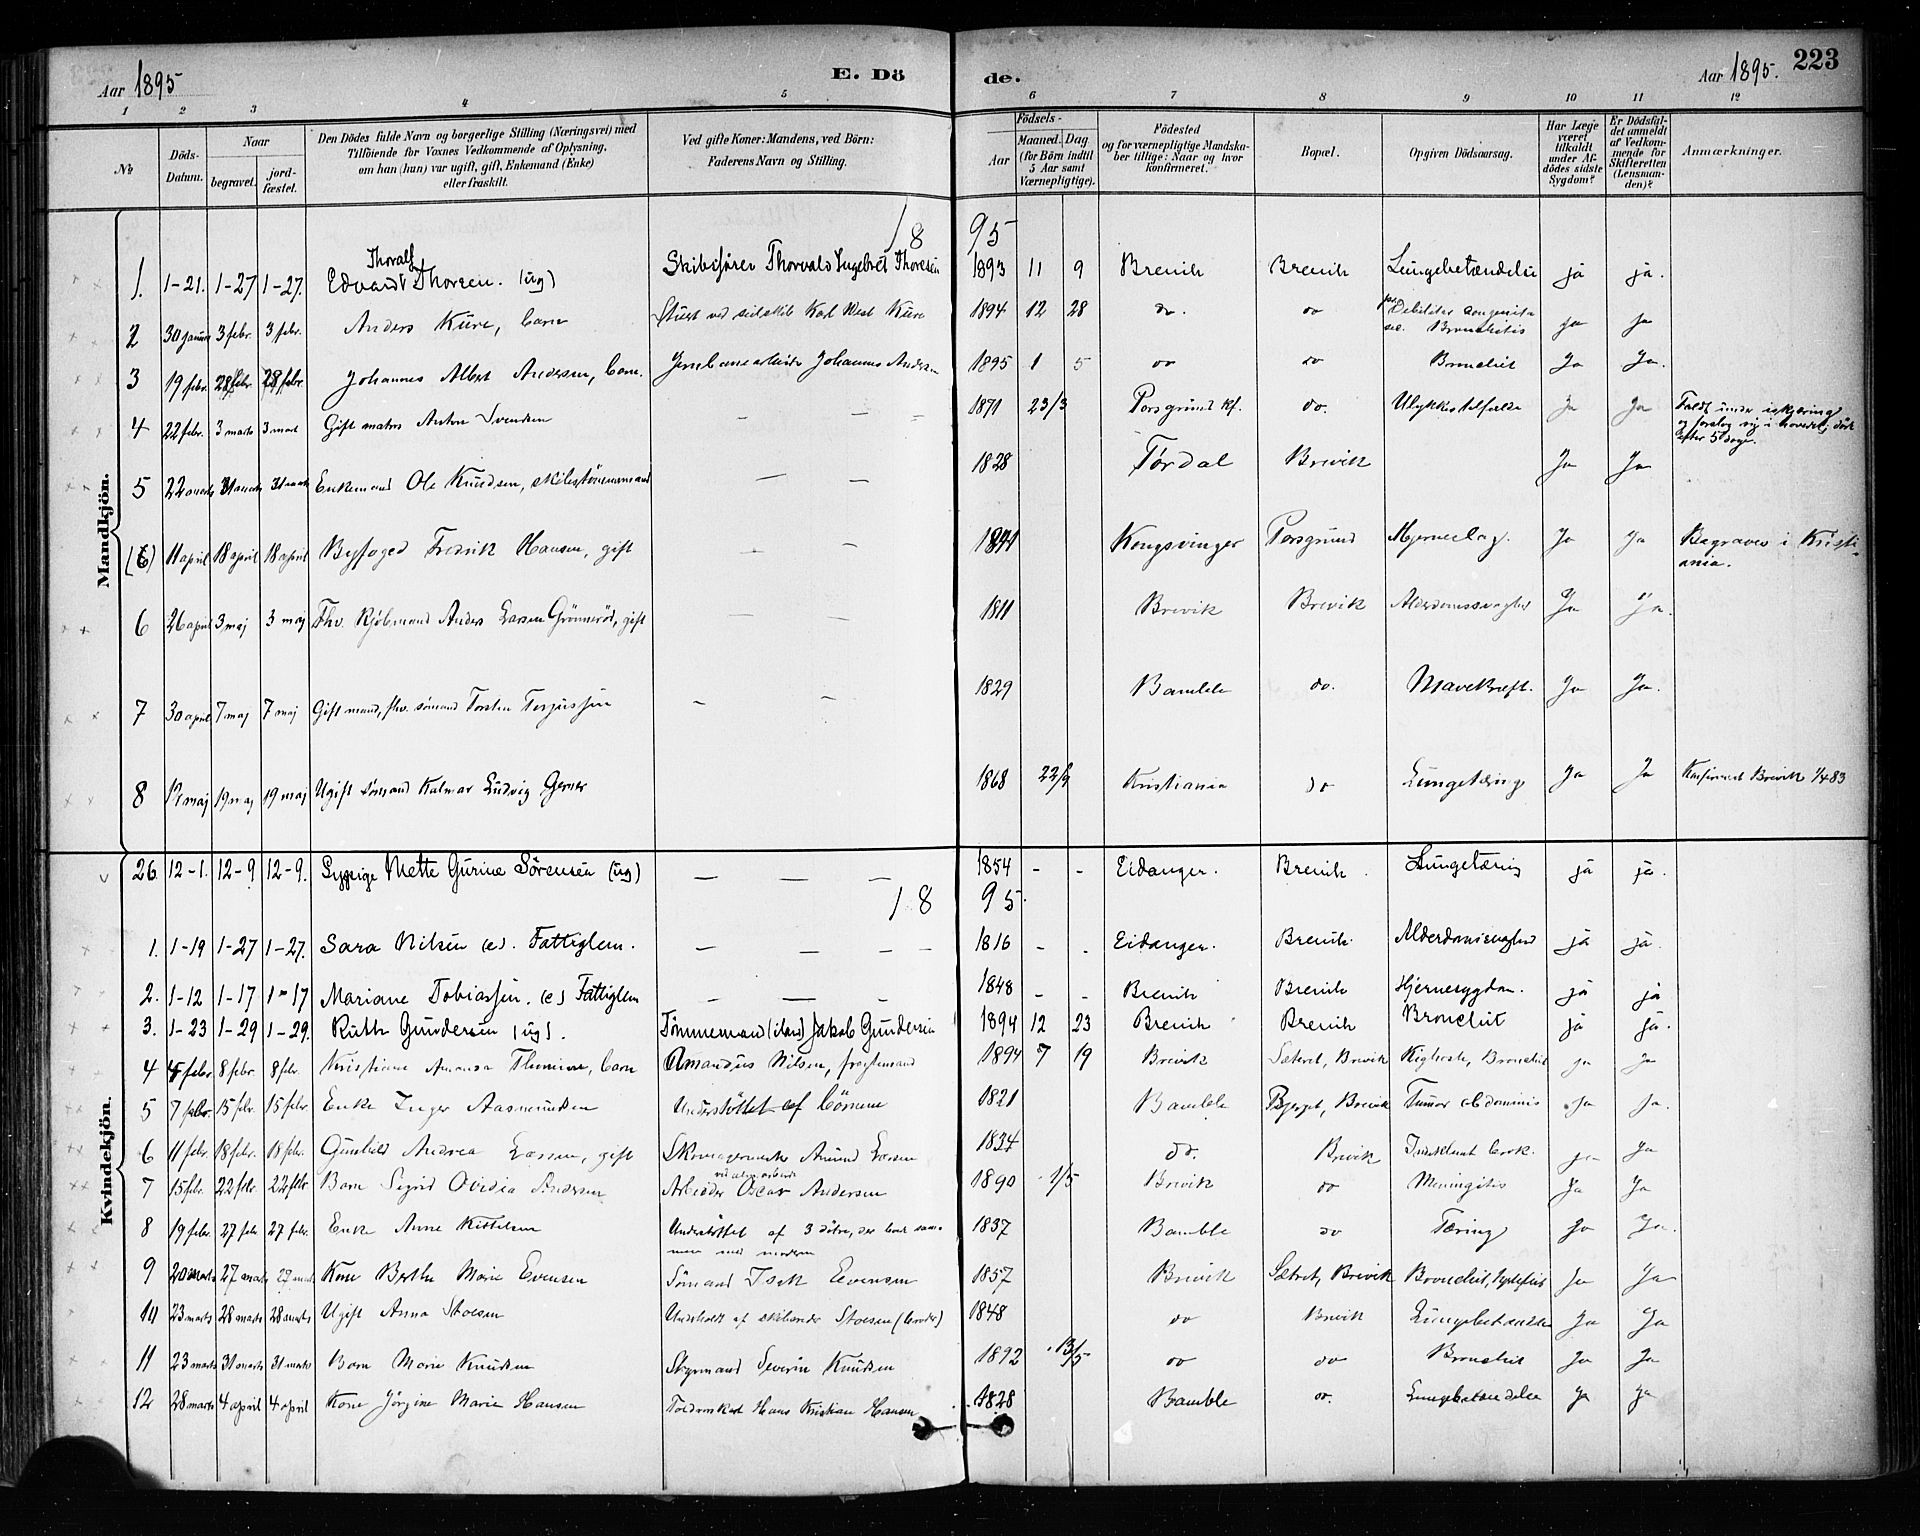 Aar 1895
E. Döde.
Aar 1895.
223
1 2 3 4 5 6 7 8 9 10 11 12
No
Döds-Datum.
Naar begravet. jordfæstet.
Den Dödes fulde Navn og borgerlige Stilling (Næringsvei) med Tilföiende for Voxnes Vedkommende af Oplysning, om han (hun) var ugift, gift, Enkemand (Enke) eller fraskilt.
Ved gifte Koner: Mandens, ved Börn: Faderens Navn og Stilling.
Födsels-
Aar Maaned. Dag (for Börn indtil 5 Aar samt Værnepligtige).
Födested og for værnepligtige Mandskaber tillige: Naar og hvor konfirmeret.
Bopæl.
Opgiven Dödsaarsag.
Har Læge været tilkaldt under Afdödes sidste Sygdom?
Er Dödsfaldet anmeldt af Vedkommende for Skifteretten (Lensmanden)?
Anmærkninger.
Mandkjön.
1895
1. 1-21. 1-27 1-27. Thoralf Edvardt Thorsen. (ug) Skibsfører Thorvald Ingebret Thoresen 1893 11 9 Brevik Brevik Lungebetændelse ja ja.
2 30 januar 3 febr. 3 febr. Anders Kure, barn Stuert ved seilskib Karl West Kure 1894 12 28 do. do Debilitas congenita sec. Bronchitis ja ja
3 19 febr. 28 febr. 28 febr. Johannes Albert Andersen, barn. Jernbanearbeider Johannes Andersen 1895 1 5 do do Bronchit Ja Ja.
4 22 febr. 3 marts 3 mart Gift matros Anton Svendsen — — — 1871 23/3 Porsgrund kf. do. Ulykkestilfælde Ja Ja Faldt under iskjøring og forslog sig i hovedet; død efter 5 dage.
5 22 marts 31 marts 31 marts Enkemand Ole Knudsen, skibstømmermand — — 1828 Tørdal Brevik Ja Ja
(6) 11 april 18 april 18 april Byfoged Fredrik Hansen, gift — — 1841 Kongsvinger Porsgrund Hjerneslag. Ja Ja Begraves i Kristiania.
6 26 april 3 maj 3 maj Fhv. Kjøbmand Anders Larsen Grønnerød, gift — — 1811 Brevik Brevik Alderdomssvaghed Ja Ja.
7 30 april 7 maj 7 maj Gift mand, fhv. sømand Torsten Terjussen — — 1829 Bamble do. Mavekræft. Ja Ja.
8 12 maj 19 maj 19 maj Ugift sømand Kalmar Ludvig Gerner 1868 22/9 Kristiania do Lungetæring Ja Ja Konfirmert Brevik 1/4 83
Kvindekjön.
26. 12-1. 12-9 12-9. Sypige Mette Gurine Sørensen (ug) — — — 1854 - - Eidanger. Brevik. Lungetæring ja ja.
1895.
1. 1-19 1-27 1-27. Sara Nilsen (e). Fattiglem. — — — 1816 - - Eidanger. Brevik. Alderdomssvaghed ja ja.
2. 1-12 1-17 1-17 Mariane Tobiassen. (e) Fattiglem — — — 1848 - - Brevik Brevik Hjernesygdom. ja ja
3. 1-23 1-29 1-29. Ruth Gundersen (ug). Tømmermand (iland) Jakob Gundersen 1894 12 23 Brevik Brevik Bronchit ja ja.
4 4 febr 8 febr. 8 febr. Kristiane Amanda Thomine, barn Amandus Nilsen, fragtemand 1894 7 19 Brevik Sætret, Brevik Kighoste, Bronchit ja ja
5 7 febr. 15 febr. 15 febr. Enke Inger Aasmundsen Understøttet af børnene 1821 Bamble Bjerget, Brevik Tumor abdominis Ja Ja.
6 11 febr. 18 febr. 18 febr. Gunhild Andrea Larsen, gift Skomagermester Amund Larsen 1834 do. Brevik Indeklemt brok. ja Ja
7 15 febr. 22 febr 22 febr Barn Sigrid Ovidia Andersen Arbeider Oscar Andersen 1890 1/5 Brevik do Meningitis Ja Ja
8 19 febr. 27 febr 27 febr. Enke Anne Kittilsen Understøttet af 3 døtre, der bor sammen med moderen 1837 Bamble do Tæring Ja Ja.
9 20 marts 27 marts 27 marts Kone Berthe Marie Evensen Sømand Isak Evensen 1857 Brevik Sætret, Brevik Bronchit, Ja Ja
10 23 marts 28 marts 28 marts Ugift Anna Stoesen Underholdt af skibsreder Stoesen (broder) 1848 do Brevik Lungebetændelse Ja Ja
11 23 marts 31 marts 31 marts Barn Marie Knudsen Styrmand Severin Knudsen 1892 13/5 do do Bronchit Ja Ja
12 28 marts 4 april 4 april Kone Jørgine Marie Hansen Toldvokter Hans Kristian Hansen 1828 Bamble do. Lungebetændelse Ja Ja